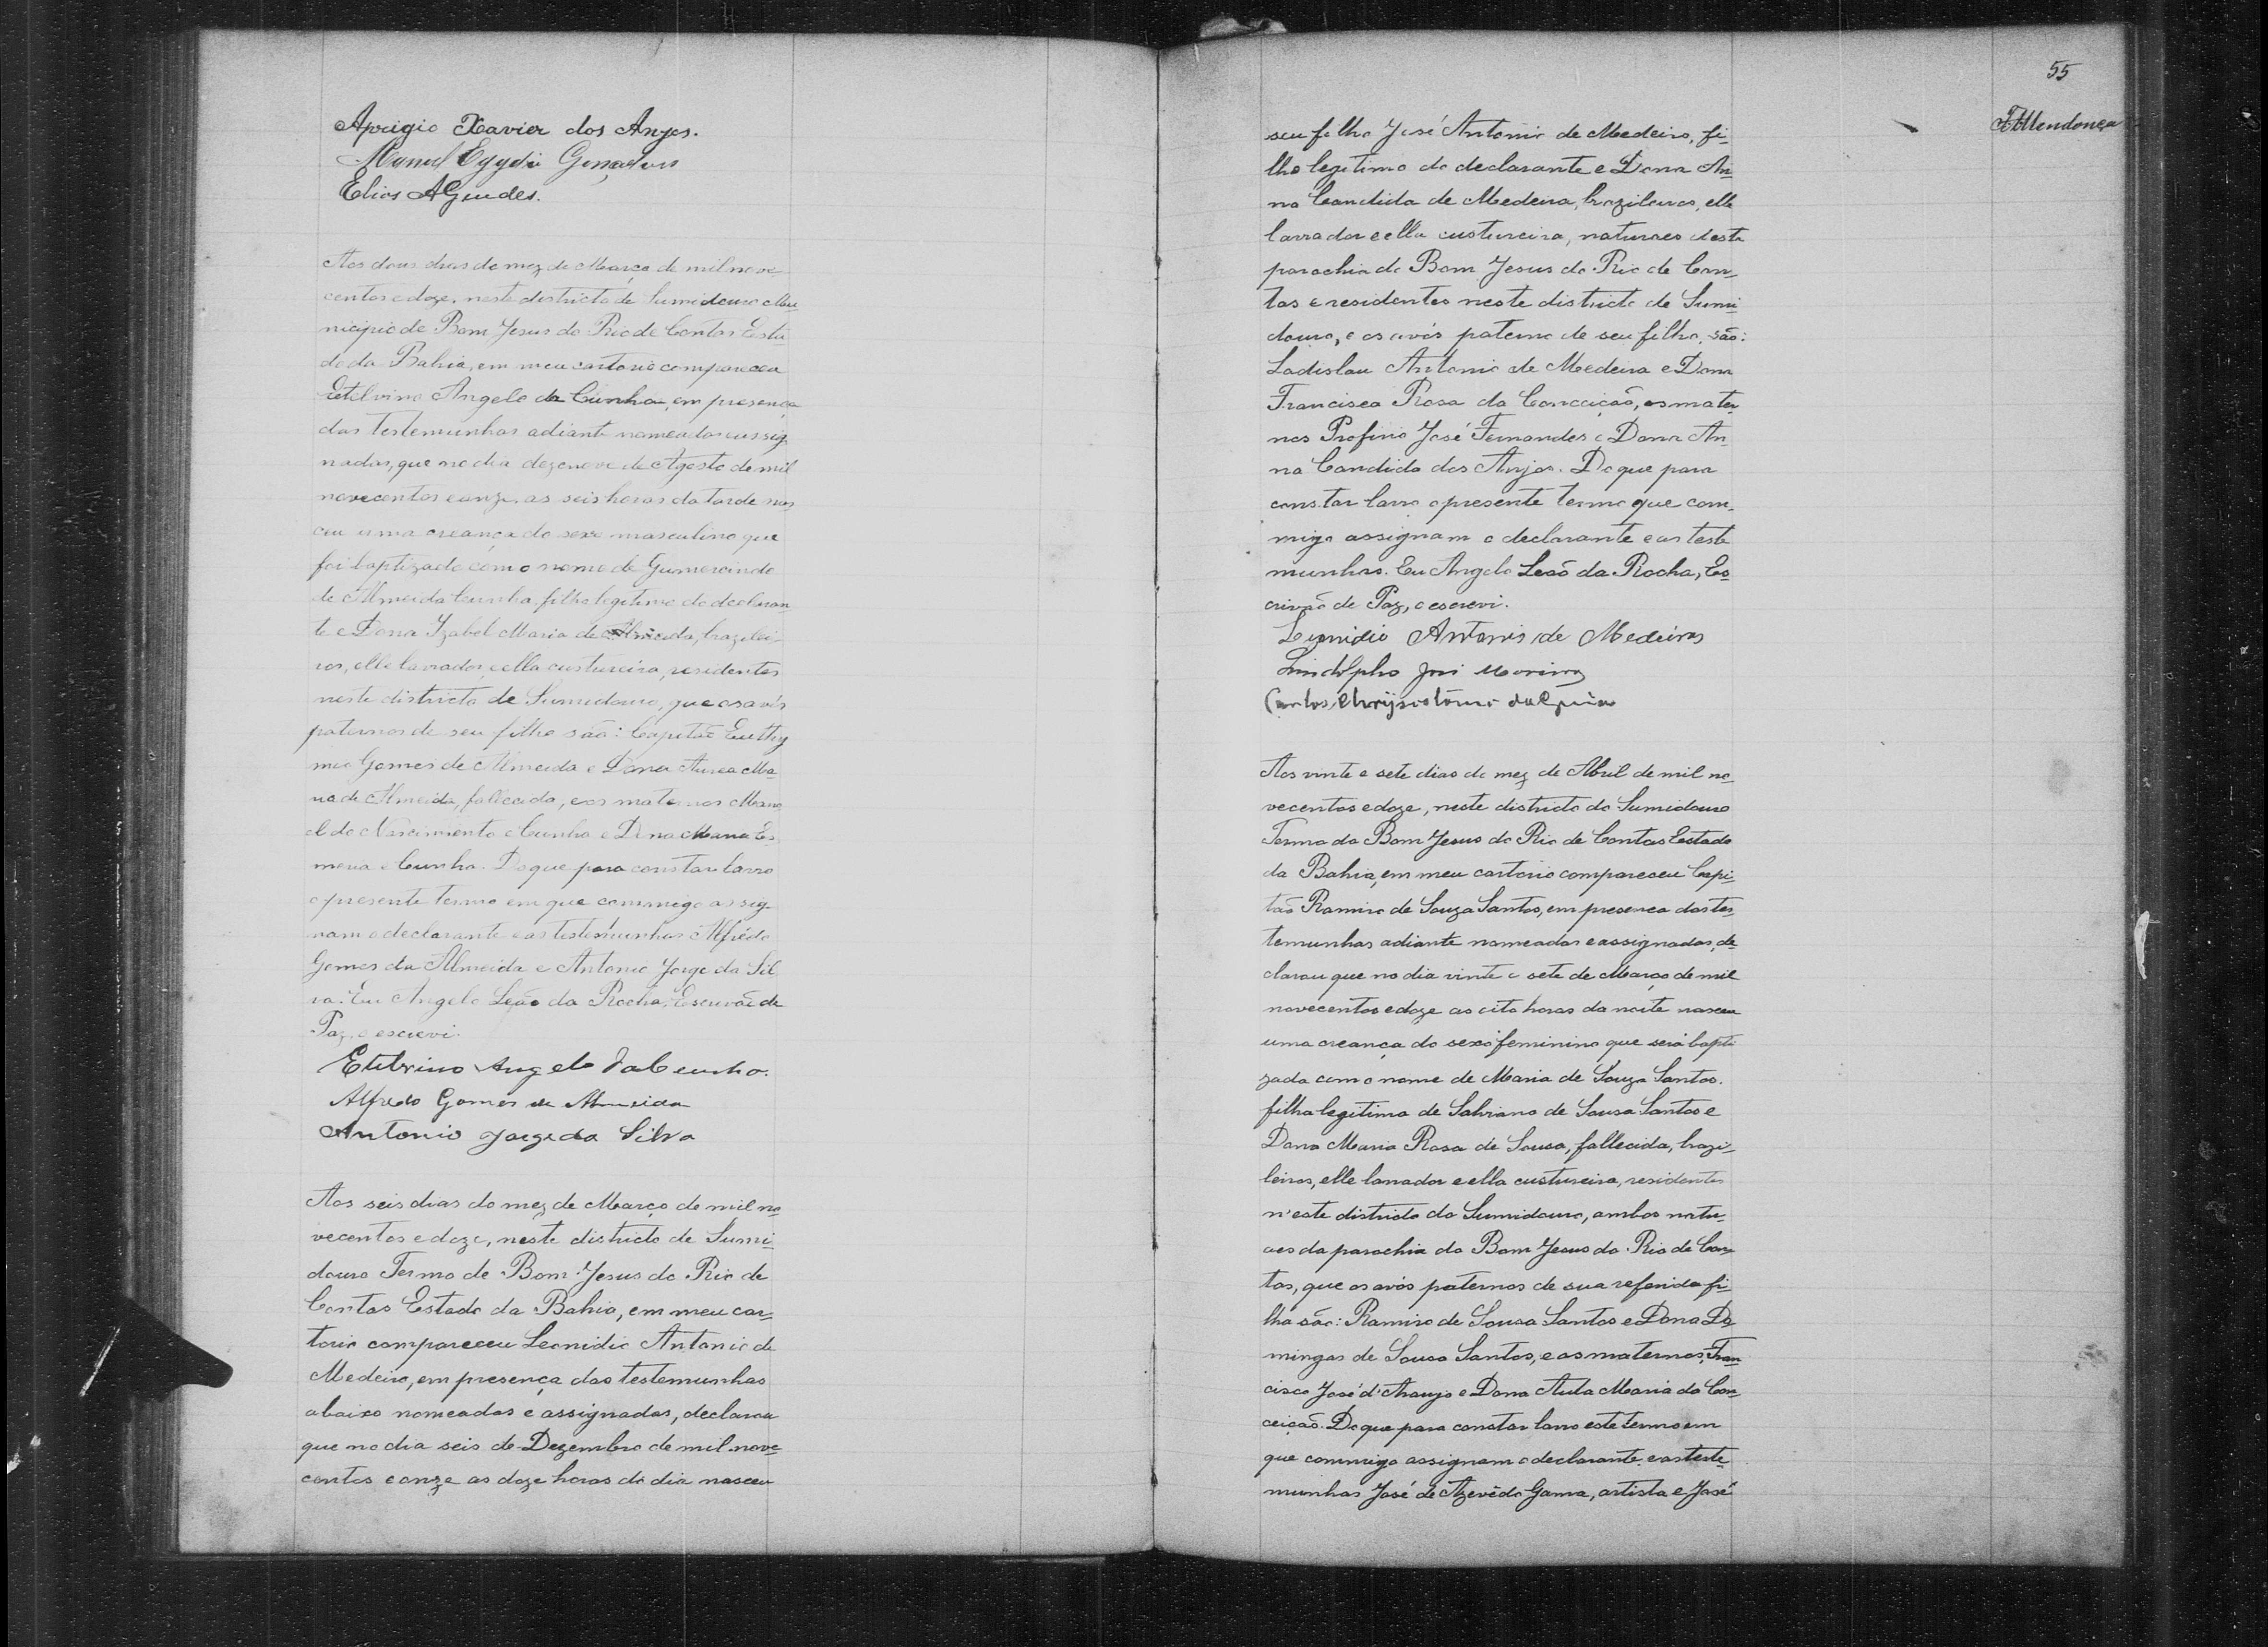 Aprigio Xavier dos Anjos.
Manuel Egydio Gonçalves
Elias A Guedes.
Aos dous dias do mez de Março de mil nove
centos e doze, neste districto de Sumidouro Mu
nicipio de Bom Jesus do Rio de Contas Esta
do da Bahia, em meu cartorio compareceu
Etelvino Angelo da Cunha, em presença
das testemunhas adiante nomeadas e assig
nadas, que no dia dezenove de Agosto de mil
novecentos e onze as seis horas da tarde nas
ceu uma creança do sexo masculino que
foi baptizado com o nome de Gumercindo
de Almeida Cunha, filho legitimo do declaran
te e Dona Izabel Maria de Almeida, brazilei
ros, elle lavrador e ella custureira, residentes
neste districto de Sumidouro, que os avós
paternos de seu filho são: Capitão Euthy
mio Gomes de Almeida e Dona Aurea Ma
ria de Almeida, fallecida, e os maternos Mano
el do Nascimento e Cunha e Dona Maria Es
meria e Cunha. Do que para constar lavro
o presente termo em que commigo assig
nam o declarante e as testemunhas Alfrêdo
Gomes de Almeida e Antonio Jorge da Sil
va. Eu Angelo Leão da Rocha, Escrivão de
Paz, o escrevi.
Etelvino Angelo da Cunha.
Alfredo Gomes de Almeida
Antonio Jorge da Silva
Aos seis dias do mez de Março de mil no
vecentos e doze, neste districto de Sumi
douro Termo de Bom Jesus do Rio de
Contas Estado da Bahia, em meu car
torio compareceu Leonidio Antonio de
Medeiro, em presença das testemunhas
abaixo nomeadas e assignadas, declarou
que no dia seis de Dezembro de mil nove
centos e onze as doze horas do dia nasceu
55
Mendonça
seu filho José Antonio de Medeiro, fi
lho legitimo do declarante e Dona An
na Candida de Medeira, brazileiros, elle
lavrador e ella custureira, naturaes desta
parochia do Bom Jesus do Rio de Con
tas e residentes neste districto de Sumi
douro, e os avós paterno de seu filho, são:
Ladislau Antonio de Medeira e Dona
Francisca Rosa da Conceição, os mater
nos Profirio José Fernandes e Dona An
na Candida dos Anjos. Do que para
constar lavro o presente termo que com
migo assignam o declarante e as teste
munhas. Eu Angelo Leaõ da Rocha, Es
crivão de Paz, o escrevi.
Leonidio Antonio de Medeiros
Lindolpho José Moreira
Carlos Chrysostomo
Aos vinte e sete dias do mez de Abril de mil no
vecentos e doze, neste districto do Sumidouro
Termo do Bom Jesus do Rio de Contas Estado
da Bahia, em meu cartorio compareceu Capi
taõ Ramiro de Souza Santos, em presença das tes
temunhas adiante nomeadas e assignadas, de
clarou que no dia vinte e sete de Março de mil
novecentos e doze as oito horas da noite nasceu
uma creança do sexo feminino que será bapti
zada com o nome de Maria de Souza Santos.
filha legitima de Salviano de Sousa Santos e
Dona Maria Rosa de Sousa, fallecida, brazi
leiros, elle lavrador e ella custureira, residentes
n'este districto do Sumidouro, ambos natu
aes da parochia do Bom Jesus do Rio de Con
tas, que os avós paternos de sua referida fi
lha são: Ramiro de Sousa Santos e Dona Do
mingas de Sousa Santos, e os maternos, Fran
cisco José d'Araujo e Dona Auta Maria da Con
ceição. Do que para constar lavro este termo em
que commigo assignam o declarante e as teste
munhas José de Azevêdo Gama, artista e José